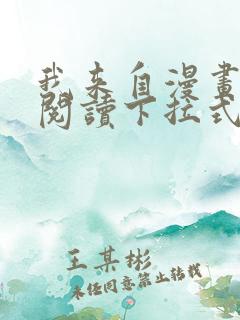 我来自漫畫
閱讀下拉式
王某彬
未经同意禁止转载